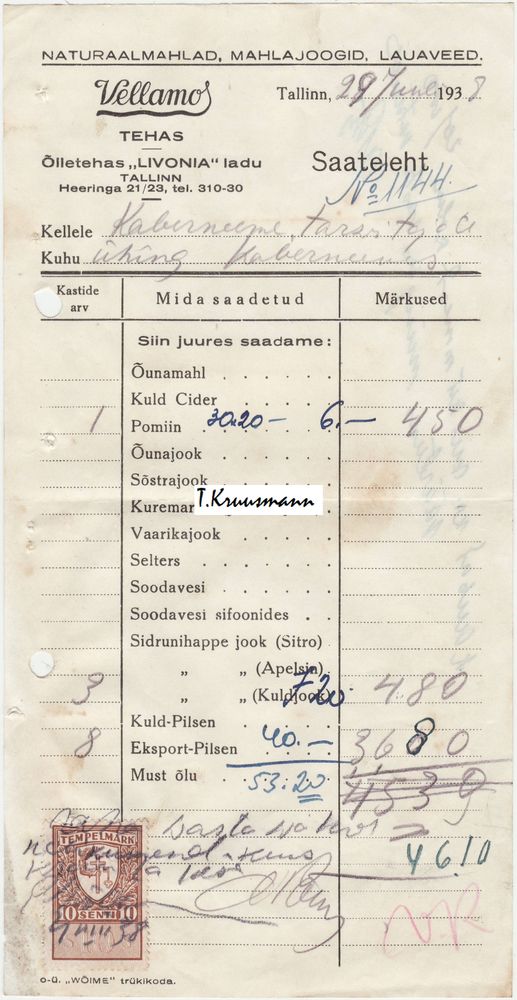 NATURAALMAHLAD, MAHLAJOOGID, LAUAVEED.
Vellamo
TEHAS
Õlletehas „LIVONIA" ladu
TALLINN
Heeringa 21/23, tel. 310-30
Tallinn, 29 Juuli 1938
Saateleht
No 1144.
Kellele Kaberneeme, tarvitajate
Kuhu ühing Kaberneemes
Kastide arv Mida saadetud Märkused
Siin juures saadame:
Õunamahl
Kuld Cider
1 Pomiin 30.20 — 6.— 450
Õunajook
Sõstrajook
Kuremar T.Kruusmann
Vaarikajook
Selters
Soodavesi
Soodavesi sifoonides
Sidrunihappe jook (Sitro)
„ „ (Apelsin)
3 „ „ (Kuldjook) 7.20 480
Kuld-Pilsen
8 Eksport-Pilsen 40.— 36 80
Must õlu 53.20
4610
TEMPELMARK
10 SENTI 10
V.R
o-ü. „WÕIME" trükikoda.